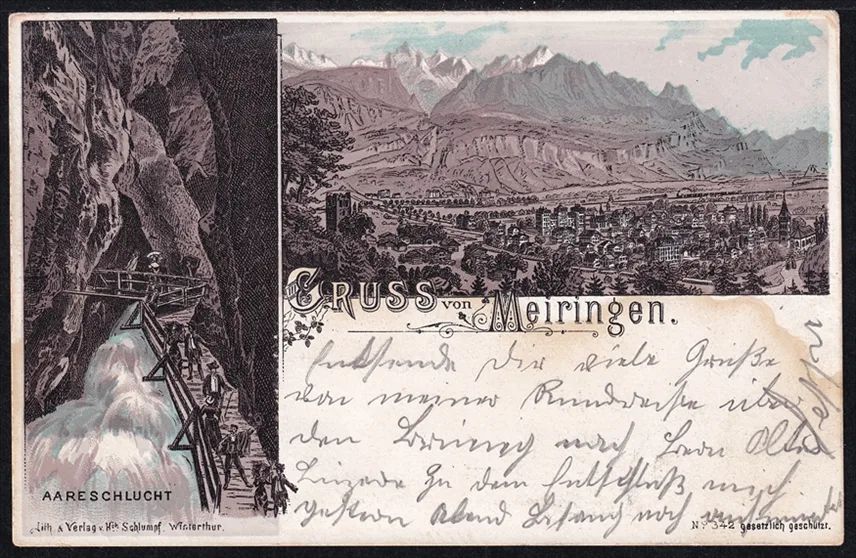 GRUSS von Meiringen.
Entsende Dir viele Grüße
von meiner Rundreise über
den Brünig nach
zu dem Entschluß mich
gestern Abend noch
AARESCHLUCHT
Lith. & Verlag v. Hch. Schlumpf, Winterthur.
No 342 gesetzlich geschützt.